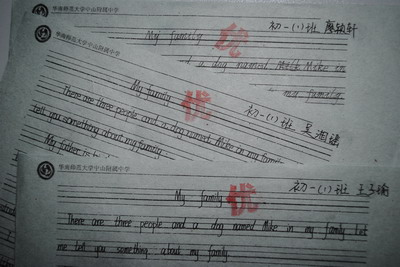 华南师范大学中山附属中学
初一(1)班
My family
优
and a dog named Mike in
my family
华南师范大学中山附属中学
My family
优
初一(1)班 吴湘
There are three people and a dog named Mike in my family
tell you something about my family
My father is
华南师范大学中山附属中学
My family
优
初一(1)班 王子楠
There are three people and a dog named Mike in my family Let
me tell you something about my family